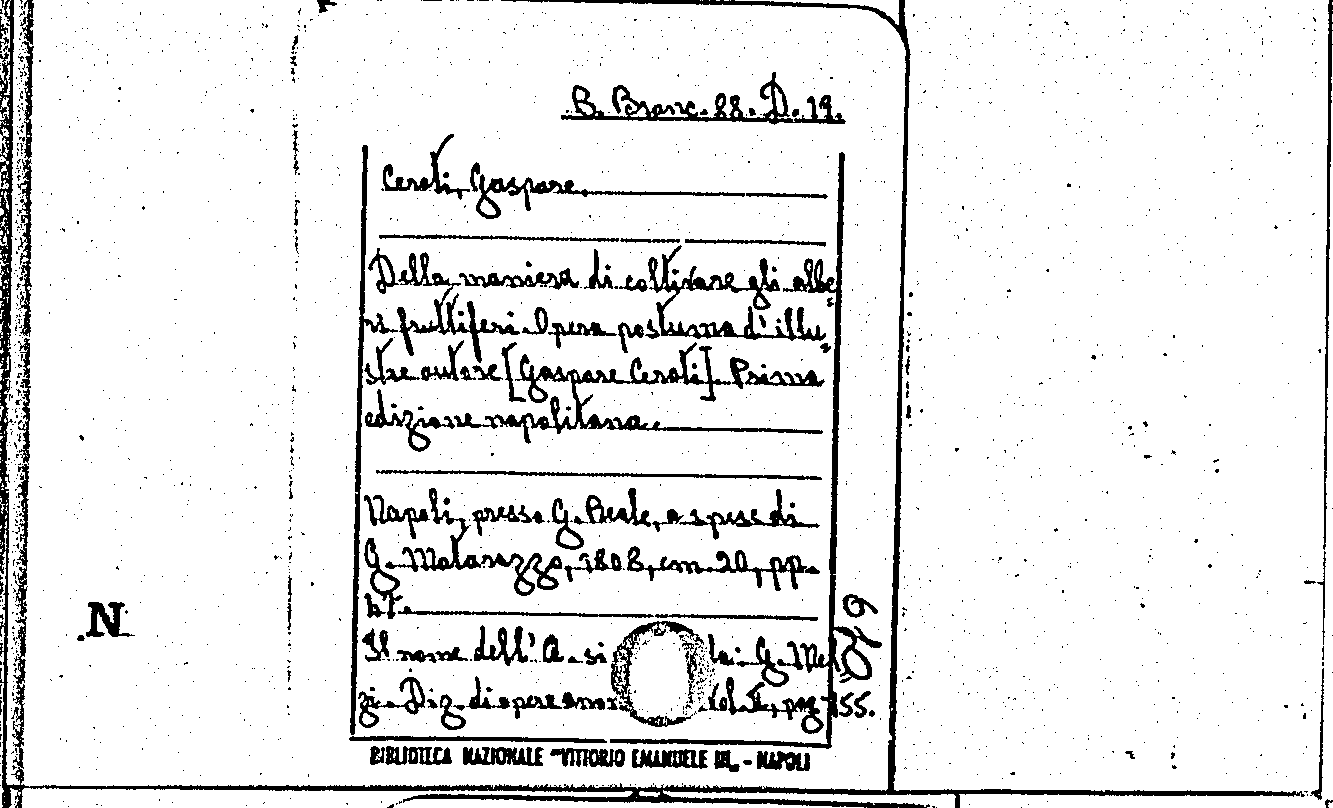 B. Branc. 88. D. 19.
Ceroti, Gaspare.
Della maniera di coltivare gli albe=
ri fruttiferi. Opera postuma d'illu=
stre autore [Gaspare Ceroti]. Prima
edizione napolitana.
Napoli, presso G. Reale, a spese di
G. Matarazzo, 1808, cm. 20, pp.
Il nome dell'A. si G. Mel
zi. Diz. di opere pag. 155.
N
BIBLIOTECA NAZIONALE "VITTORIO EMANUELE III" - NAPOLI